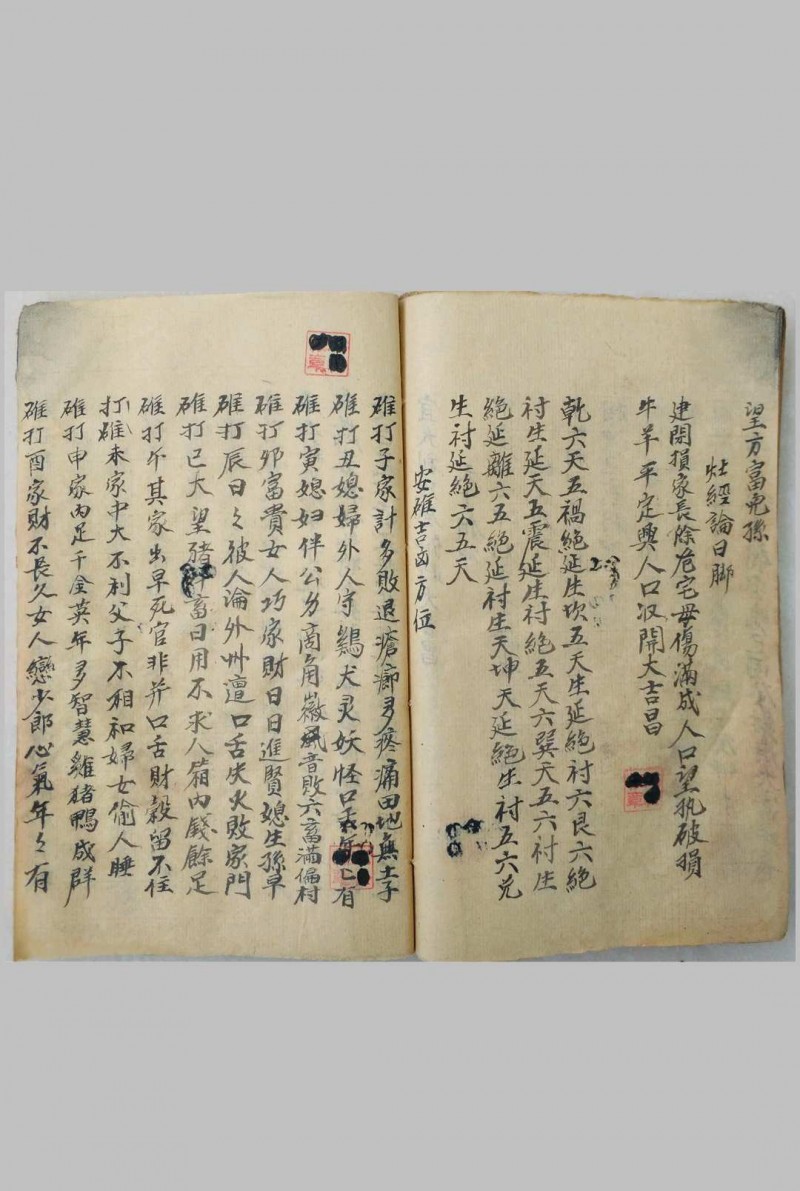 望方富兒孫
灶經論日脚
建開損家長除危宅母傷滿成人口望執破損
牛羊平定興人口収開大吉昌
乾六天五禍絕延生坎五天生延絕禍六艮六絕
禍生延天五震延生禍絕五天六巽天五六禍生
絕延離六五絕延禍生天坤天延絕生禍五六兌
生禍延絕六五天
安碓吉凶方位
碓打子家計多敗退瘡癤多疼痛田地無土子
碓打丑媳婦外人守鷄犬灵妖怪口舌年〻有
碓打寅媳婦伴公勿商角徵風音敗六畜滿偏村
碓打卯富貴女人巧家財日日進賢媳生孫早
碓打辰日〻被人論外州遭口舌失火敗家門
碓打巳大望猪畜日用不求人箱内錢餘足
碓打午其家出早死官非并口舌財穀留不住
打碓未家中大不利父子不相和婦女偷人睡
碓打申家内足千金英年多智慧雞猪鴨成群
碓打酉家財不長久女人戀少郎心氣年〻有